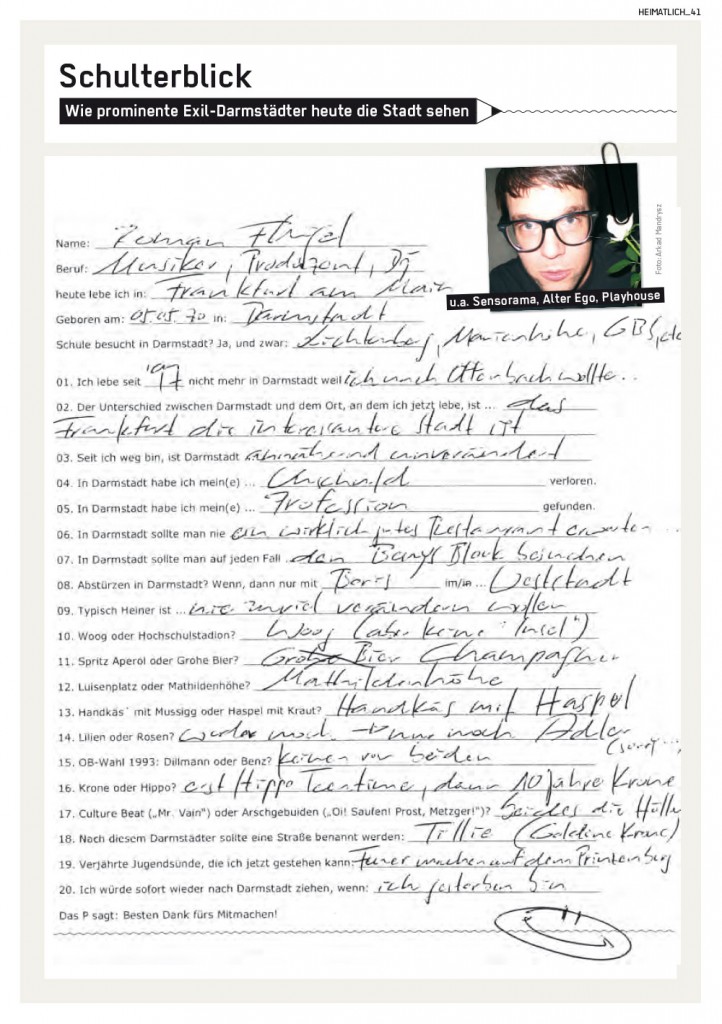 HEIMATLICH_41
Schulterblick
Wie prominente Exil-Darmstädter heute die Stadt sehen
Foto: Arkad Mandrysz
u.a. Sensorama, Alter Ego, Playhouse
Name: Roman Flügel
Beruf: Musiker, Produzent, Dj
heute lebe ich in: Frankfurt am Main
Geboren am: 05.05.70 in: Darmstadt
Schule besucht in Darmstadt? Ja, und zwar: Lichtenberg, Marienhöhe, GBS, etc
01. Ich lebe seit 97 nicht mehr in Darmstadt weil ich nach Offenbach wollte..
02. Der Unterschied zwischen Darmstadt und dem Ort, an dem ich jetzt lebe, ist ... das
Frankfurt die interessantere Stadt ist
03. Seit ich weg bin, ist Darmstadt annähernd unverändert
04. In Darmstadt habe ich mein(e) ... Unschuld verloren.
05. In Darmstadt habe ich mein(e) ... Profession gefunden.
06. In Darmstadt sollte man nie ein wirklich gutes Restaurant erwarten ...
07. In Darmstadt sollte man auf jeden Fall den Block besuchen
08. Abstürzen in Darmstadt? Wenn, dann nur mit Boris im/in ... Weststadt
09. Typisch Heiner ist ... nie zuviel verändern wollen
10. Woog oder Hochschulstadion? Woog (aber keine "Insel")
11. Spritz Aperol oder Grohe Bier? Grohe Bier Champagner
12. Luisenplatz oder Mathildenhöhe? Mathildenhöhe
13. Handkäs´ mit Mussigg oder Haspel mit Kraut? Handkäs mit Haspel
14. Lilien oder Rosen? weder noch nur noch Adler (sorry...)
15. OB-Wahl 1993: Dillmann oder Benz? keinen von beiden
16. Krone oder Hippo? erst Hippo Teentime, dann 10 Jahre Krone
17. Culture Beat („Mr. Vain") oder Arschgebuiden („Oi! Saufen! Prost, Metzger!")? beides die Hölle
18. Nach diesem Darmstädter sollte eine Straße benannt werden: Tillie (Goldene Krone)
19. Verjährte Jugendsünde, die ich jetzt gestehen kann: Feuer machen auf dem Prinzenberg
20. Ich würde sofort wieder nach Darmstadt ziehen, wenn: ich gestorben bin
Das P sagt: Besten Dank fürs Mitmachen!